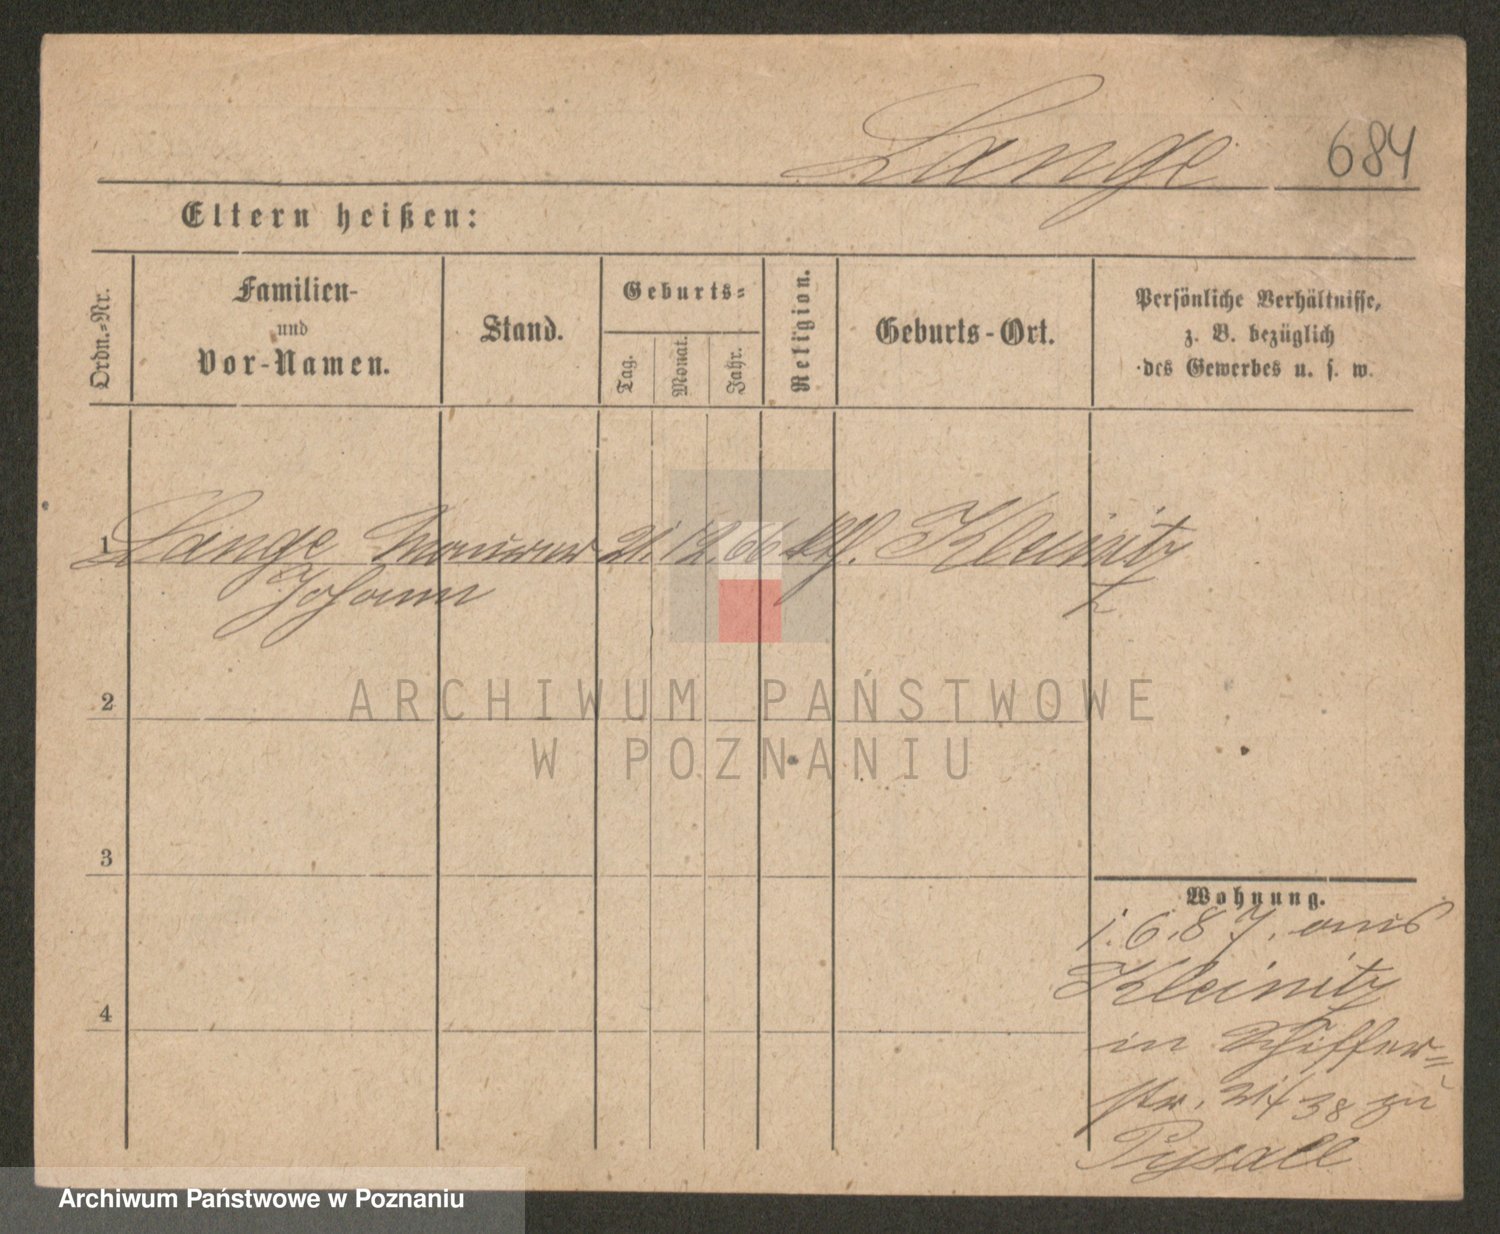 Lange 684
Eltern heißen:
Ordn.-Nr.
Familien-
und
Vor-Namen.
Stand.
Geburts-
Tag.
Monat.
Jahr.
Religion.
Geburts-Ort.
Persönliche Verhältnisse,
z. B. bezüglich
des Gewerbes u. s. w.
1 Lange Maurer 21. 12. 66. Kleinitz
Johann
2
ARCHIWUM PAŃSTWOWE
W POZNANIU
3
Wohnung.
1. 6. 87. aus
Kleinitz
4
in Schiffer=
str. 21/38 zu
Pysall
Archiwum Państwowe w Poznaniu